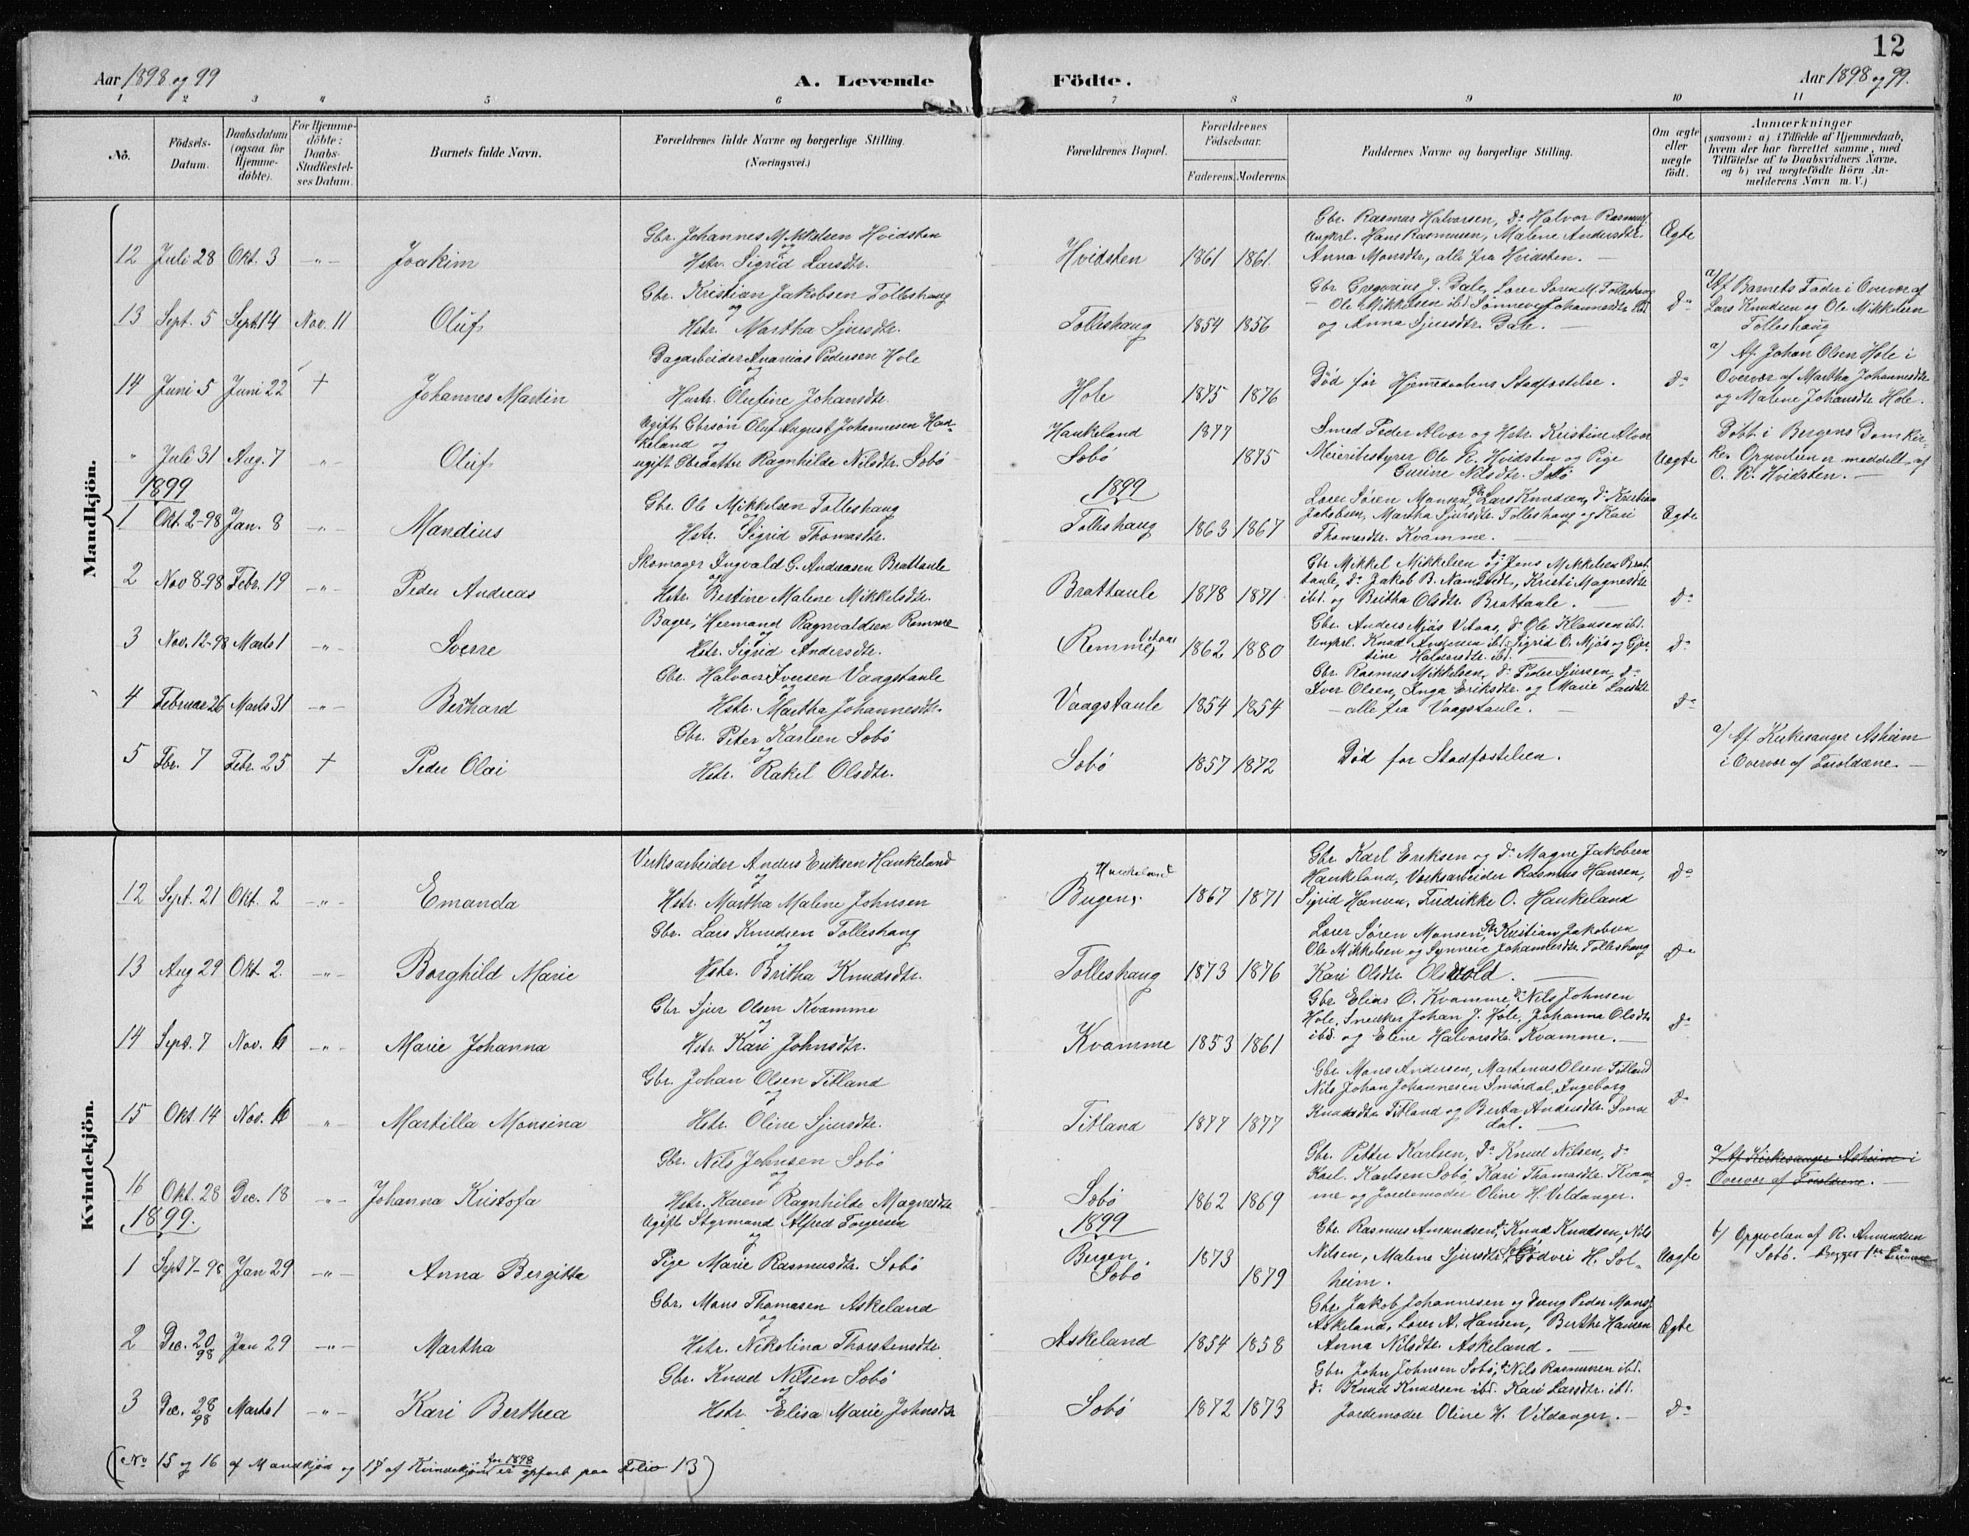 12
Aar 1898 og 99
A. Levende Födte.
Aar 1898 og 99.
1 2 3 " 5 6 7 8 9 10 11
No.
Födsels-Datum.
Daabsdatum (ogsaa för Hjemmedöbte).
For Hjemmedöbte: Daabs-Stadfæstelses Datum.
Barnets fulde Navn.
Forældrenes fulde Navne og borgerlige Stilling.
(Næringsvei.)
Forældrenes Bopæl.
Forældrenes Födselsaar.
Faderens. Moderens.
Faddernes Navne og borgerlige Stilling.
Om ægte eller uægte födt.
Anmærkninger
(saasom: a) i Tilfælde af Hjemmedaab, hvem der har forrettet samme, med Tilföielse af to Daabsvidners Navne, og b) ved uægtefödte Börn Anmelderens Navn m. V.)
Mandkjön.
12 Juli 28 Okt. 3 -"- Joakim
Gbr. Johannes Mikkelsen Hvidsten
og
Hstr. Sigrid Larsdtr.
Hvidsten 1861 1861
Gbr. Rasmus Halvorsen, do Halvor Rasmus
Ungkrl. Hans Rasmussen, Malene Andersdtr.
Anna Monsdtr, alle fra Hvidsten. —
Ægte
13 Sept. 5 Sept. 14 Nov. 11 Oluf
Gbr. Kristian Jakobsen Tolleshaug
og
Hstr. Martha Sjursdtr.
Tolleshaug 1854 1856
Gbr Gregorius J. Dale, Lærer Søren M. Tolleshaug
Ole Mikkelsen ibd Sønneve Johannesdtr ibd
og Anna Sjursdtr. Dale. —
do
a) Af Barnets Fader i Overvær af
Lars Knudsen og Ole Mikkelsen
Tolleshaug
14 Juni 5 Juni 22 † Johannes Martin
Dagarbeider Ananias Pedersen Hole
og
Hustr. Olufine Johansdtr.
Hole 1875 1876
Død før Hjemmedaabens Stadfæstelse.
do
a) Af Johan Olsen Hole i
Overvær af Martha Johannesdtr
og Malene Johansdtr Hole.
" Juli 31 Aug. 7 " Oluf
Ugift Gbrsøn Oluf August Johannesen Hau-
keland og
ugift Gbrdatter Ragnhilde Nilsdtr. Sobö
Haukeland 1877
Sobö 1875
Smed Peder Alvær og Hstr. Kristine Alvær
Meieribestyrer Ole R. Hvidsten og Pige
Nilsdtr Sobö
Uægte
Döbt i Bergens Domkir-
ke. Opgivelsen er meddelt af
O. R. Hvidsten. —
1899
1899
1 Okt. 2-98 Jan. 8 -"- Mandius
Gbr. Ole Mikkelsen Tolleshaug
og
Hstr. Sigrid Thomasdtr.
Tolleshaug 1863 1867
Lærer Søren Monsen, Gbr Lars Knudsen, do Kristian
Jakobsen, Martha Sjursdtr. Tolleshaug og Kari
Thomasdtr. Kvamme. —
Ægte
2 Nov 8-98 Febr. 19 -"- Peder Andreas
Skomager Ingvald G. Andreasen Brattaule
og
Hstr. Bertine Malene Mikkelsdtr.
Brattaule 1878 1871
Gbr Mikkel Mikkelsen og Jens Mikkelsen Brat-
taule, do Jakob B. Namtvedt, Kristi Magnesdtr
ibd. og Britha Olsdtr. Brattaule. —
do
3 Nov. 12-98 Marts 1 -"- Sverre
Bager, Hermand Ragnvaldsen Remme
og
Hstr. Sigrid Andersdtr.
Remme 1862 1880
Gbr. Anders Mjøs Vikaas, do Ole Klausen ibd.
Ungkrl. Knud Andersen ibd. Sigrid O. Mjøs og Gjer-
tine Haldorsdtr. ibd. —
do
4 Februar 26 Marts 31 -"- Berhard
Gbr. Halvor Iversen Vaagstaule
og
Hstr. Martha Johannesdtr.
Vaagstaule 1854 1854
Gbr. Rasmus Mikkelsen, do Peder Sjursen, do
Iver Olsen, Inga Eriksdtr og Marie Larsdtr
— alle fra Vaagstaule. —
do
5 Fbr. 7 Febr. 25 † Peder Olai
Gbr. Peter Karlsen Sobö
og
Hstr. Rakel Olsdtr.
Sobö 1857 1872
Död før Stadfæstelsen.
a) Af Kirkesanger Asheim
i Overvær af Forældrene. —
Kvindekjön.
12 Sept. 21 Okt. 2 -"- Emanda
Verksarbeider Anders Eriksen Haukeland
og
Hstr. Martha Malene Johnsen
Haukeland
1867 1871
Gbr Karl Eriksen og do Magne Jakobsen
Haukeland, Værksarbeider Rasmus Hansen,
Sigrid Hansen, Fredrikke O. Haukeland
do
13 Aug 29 Okt. 2. -"- Borghild Marie
Gbr. Lars Knudsen Tolleshaug
og
Hstr. Britha Knudsdtr.
Tolleshaug 1873 1876
Lærer Søren Monsen, Gbr Kristian Jakobsen
Ole Mikkelsen og Synneve Johannesdtr Tolleshaug
Kari Olsdtr Olsvold. —
do
14 Sept. 7 Nov. 6 -"- Marie Johanna
Gbr Sjur Olsen Kvamme
og
Hstr. Kari Johnsdtr.
Kvamme 1853 1861
Gbr Elias O. Kvamme, do Nils Johnsen
Hole, Snedker Johan J. Hole, Johanna Olsdtr
ibd. og Eline Halvorsdtr. Kvamme. —
do
15 Okt 14 Nov. 6 -"- Martilla Monsina
Gbr. Johan Olsen Titland
og
Hstr. Oline Sjursdtr.
Titland 1877 1877
Gbr Mons Andersen, Martenus Olsen Titland
Nils Johan Johannesen Smördal, Ingeborg
Knudsdtr Titland og Berta Andersdtr. Smör-
dal. —
do
16 Okt. 28 Dec. 18 -"- Johanna Kristofa
Gbr. Nils Johnsen Sobö
og
Hstr. Karen Ragnhilde Magnesdtr
Sobö 1862 1869
Gbr. Petter Karlsen, do Knud Nilsen, do
Karl Karlsen Sobö, Kari Thomasdtr Kvam-
me og Jordemoder Oline H. Vildanger.
do
a) Af Kirkesanger Asheim i
Overvær af Forældrene. —
1899.
1899
1 Sept 7-98 Jan 29 -"- Anna Bergitta
Ugift Styrmand Alfred Torgersen
og
Pige Marie Rasmusdtr. Sobö
Bergen 1873
Sobö 1879
Gbr. Rasmus Amundsen, do Knud Knudsen, Nils
Nilsen, Malene Sjursdtr Sobö, Gödvei H. Sol-
heim.
Uægte
b) Opgivelsen af R. Amundsen
Sobö. Begges 1ste
2 Dec. 20/98 Jan 29 -"- Martha
Gbr. Mons Thomasen Askeland
og
Hstr. Nikolina Thorstensdtr
Askeland 1854 1858
Gbr. Jakob Johannesen og Dreng Peder Mons.
Askeland, Lærer A. Hansen, Berthe Hansen
Anna Nilsdtr Askeland. —
Ægte
3 Dec. 28/98 Marts 1 -"- Kari Berthea
Gbr. Knud Nilsen Sobö
og
Hstr. Elisa Marie Johnsdtr
Sobö 1872 1873
Gbr. John Johnsen Sobö, do Nils Rasmussen ibd.
do Knud Knudsen ibd. Kari Larsdtr. ibd.
Jordemoder Oline H. Vildanger. —
do
(No 15 og 16 af Mandkjøn og 17 af Kvindekjøn for 1898 er opført paa Folio 13)